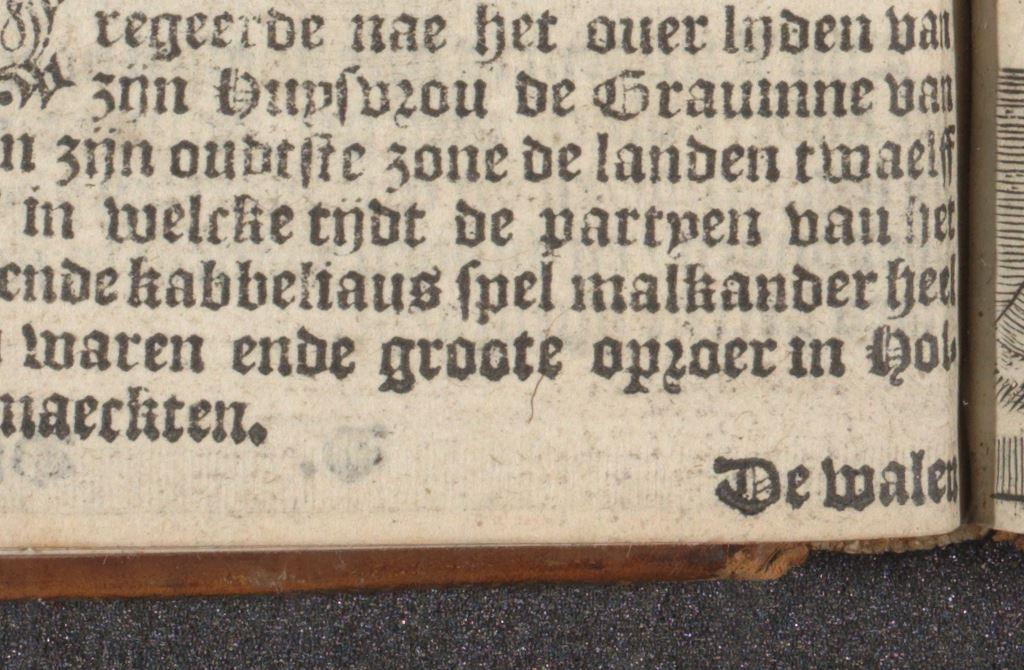 regeerde nae het ouer lijden van
zijn Huysvrou de Grauinne van
zijn oudtste zone de landen twaelff
in welcke tijdt de partyen van het
ende kabbeliaus spel malkander heel
waren ende groote oproer in Hol-
maeckten.
De walen